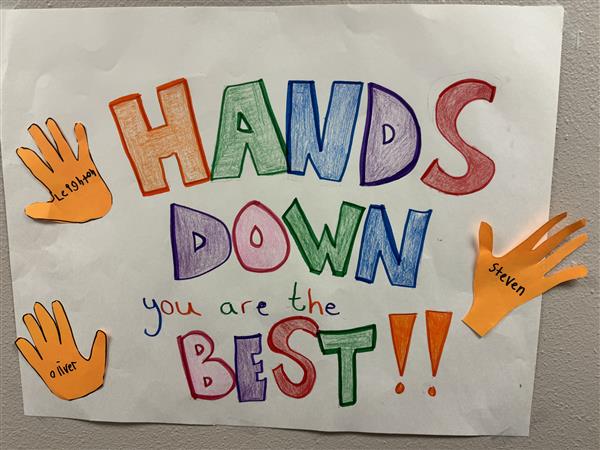 HANDS
Leighton
DOWN
Steven
you are the
BEST!!
oliver